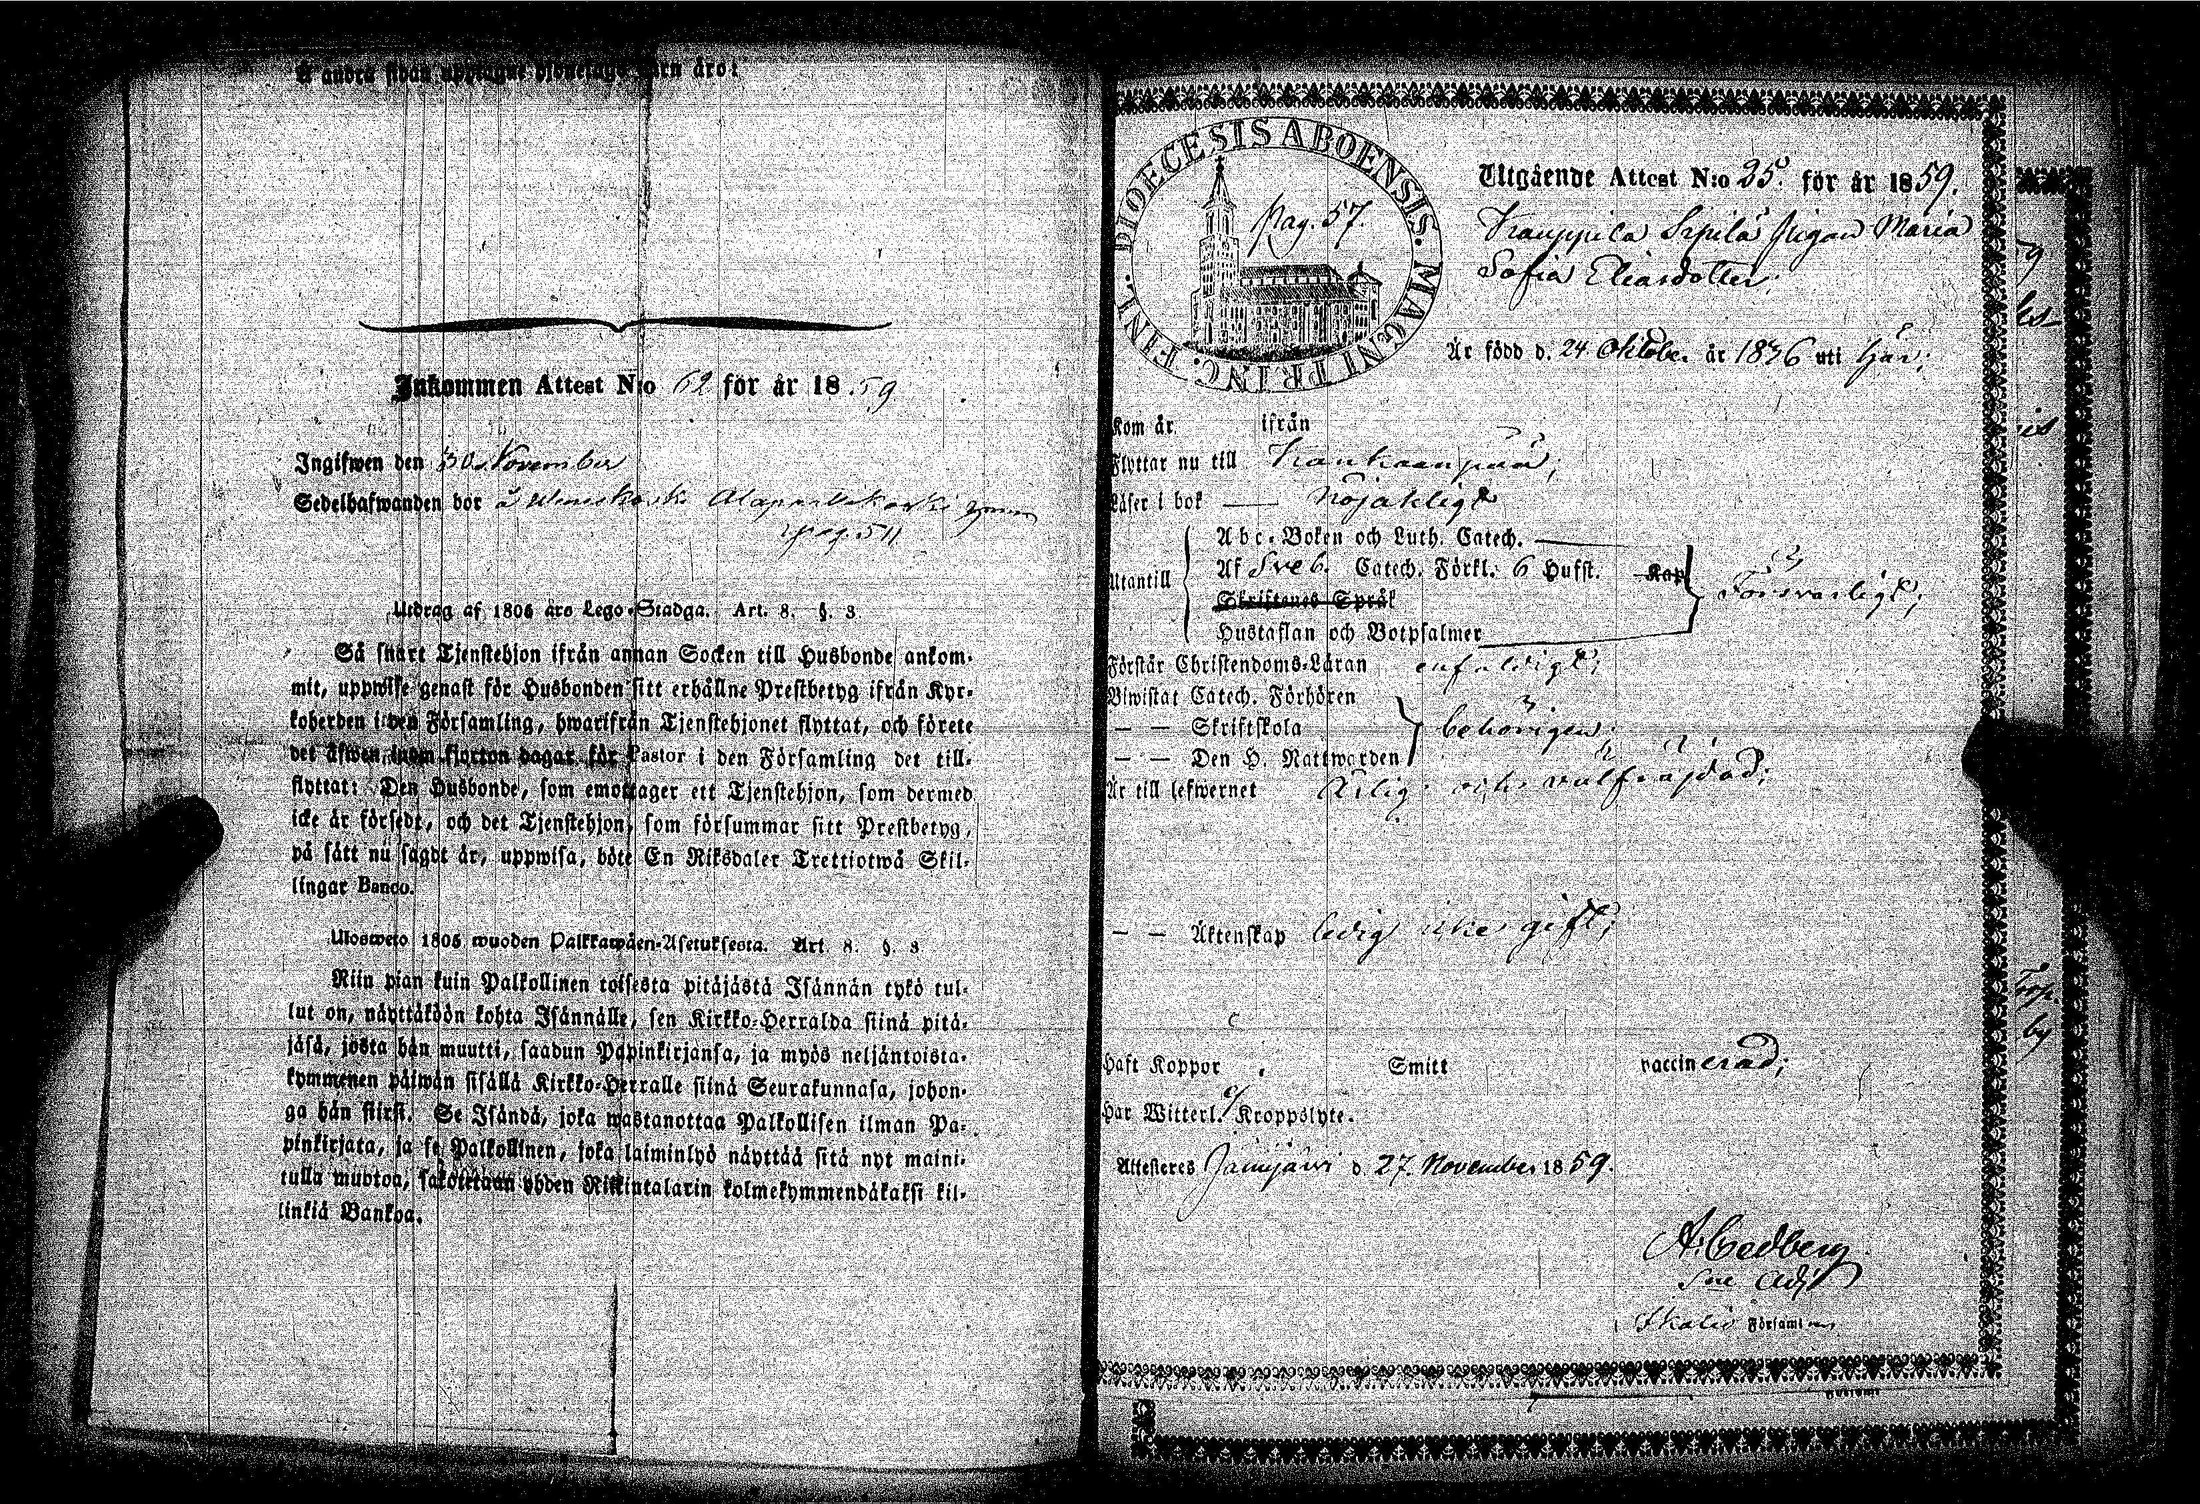 å andra sidan upptagne hjonelags barn äro:
Inkommen Attest N:o 62 för år 18.59
Ingifwen den 30 November
Sedelhafwanden bor
pag. 511
Utdrag af 1805 års Lego-Stadga. Art. 8. §. 3
Så snart Tjenstehjon ifrån annan Socken till Husbonde ankom-
mit, uppwise genast för Husbonden sitt erhållne Prestbetyg ifrån Kyr-
koherden i den Församling, hwarifrån Tjenstehjonet flyttat, och förete
det äfwen inom fjorton dagar för Pastor i den Församling det till-
flyttat: Den Husbonde, som emottager ett Tjenstehjon, som dermed
icke är försedt, och det Tjenstehjon, som försummar sitt Prestbetyg,
på sätt nu sagdt är, uppwisa, böte En Riksdaler Trettiotwå Skil-
lingar Banco.
Ulosweto 1805 wuoden Palkkawäen-Asetuksesta. Art. 8. §. 3
Niin pian kuin Palkollinen toisesta pitäjästä Isännän tykö tul-
lut on, näyttäköön kohta Isännälle, sen Kirkko-Herralda siinä pitä-
jäsä, josta hän muutti, saadun Papinkirjansa, ja myös neljäntoista-
kymmenen päiwän sisällä Kirkko-Herralle siinä Seurakunnasa, johon-
ga hän siirsi. Se Isändä, joka wastanottaa Palkollisen ilman Pa-
pinkirjata, ja se Palkollinen, joka laiminlyö näyttää sitä nyt maini-
tulla muotoa, sakoitetaan yhden Riikintalarin kolmekymmendäkaksi kil-
linkiä Bankoa.
DIOECESIS ABOENSIS. MAGNI PRINC. FINL.
pag. 57.
Utgående Attest N:o 25. för år 1859.
Kauppila Sipilä Pigan Maria
Sofia Eliasdotter;
Är född d. 24 Oktober år 1836 uti här;
Kom år ifrån
Flyttar nu till Kankaanpää;
Läser i bok — Nöjaktigt
Utantill
Abc-Boken och Luth. Catech.
Af Sveb. Catech. Förkl. 6 Hufst. Kap
Skriftenes Språk
Hustaflan och Botpsalmer
Försvarligt;
Förstår Christendoms-Läran enfaldigt;
Biwistat Catech. Förhören
— — Skriftskola
— — Den H. Nattwarden
behörigen;
Är till lefwernet Ärlig och välfräjdad;
— — Äktenskap ledig icke gift;
Haft Koppor Smitt vaccinerad;
Har Witterl. ej Kroppslyte.
Attesteres Jämijärvi d 27. November 1859.
A. Cedberg
Sne Adj
Ikalis Församl